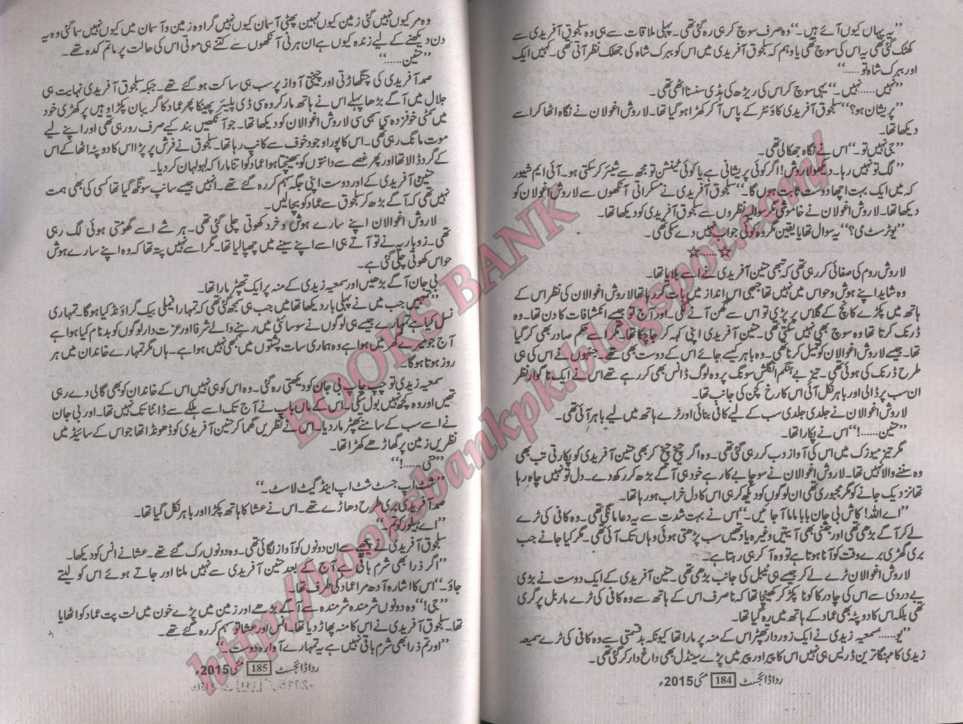 ”یہ یہاں کیوں آئے ہیں۔“ وہ صرف سوچ کر ہی رہ گئی تھی۔ پہلی ملاقات سے ہی وہ سلجوق آفریدی سے
کھٹک گئی تھی یہ اس کی سوچ تھی یا وہم کہ سلجوق آفریدی میں اس کو ببرک شاہ کی جھلک نظر آتی تھی۔ کہیں ایک
اور ببرک شاہ تو......“
”نہیں.....نہیں۔“ یہی سوچ کر اس کی ریڑھ کی ہڈی سنسنا اٹھی تھی۔
”پریشان ہو؟“ سلجوق آفریدی کاؤنٹر کے پاس آ کر کھڑا ہو گیا تھا۔ لاروش اخولان نے نگاہ اٹھا کر اسے
دیکھا تھا۔
”جی نہیں تو۔“ اس نے نگاہ جھکائی تھی۔
”لگ تو نہیں رہا۔ دیکھو لاروش! اگر کوئی پریشانی ہے یا کوئی ٹینشن تو مجھ سے شیئر کر سکتی ہو۔ آئی ایم شیور
کہ میں ایک بہت اچھا دوست ثابت ہوں گا۔“ سلجوق آفریدی نے مسکراتی آنکھوں سے لاروش اخولان کو
دیکھا تھا۔ لاروش اخولان نے خاموشی مگر سوالیہ نظروں سے سلجوق آفریدی کو دیکھا تھا۔
”یو ٹرسٹ می؟“ یہ سوال تھا یا یقین مگر وہ کوئی جواب نہیں دے سکی تھی۔
☆ ☆ ☆
لاروش روم کی صفائی کر رہی تھی کہ تبھی حنین آفریدی نے اسے بلایا تھا۔
وہ شاید اپنے ہوش و حواس میں نہیں تھا تبھی اس انداز میں بات کر رہا تھا لاروش اخولان کی نظر اس کے
ہاتھ میں پکڑے کانچ کے گلاس پر پڑی تو اس سے گھن آنے لگی۔ اور آج تو جیسے انکشافات کا دن تھا۔ وہ
ڈرنک کرتا تھا وہ سوچ بھی نہیں سکتی تھی۔ حنین آفریدی اپنی کہہ کر جا چکا تھا۔ مگر حکم صادر بھی کر گیا
تھا۔ جیسے لاروش اخولان کو تعمیل کرنا تھی۔ وہ باہر کیسے جائے اس کے دوست بھی تھے۔ جنہوں نے اس کی ہی
طرح ڈرنک پی ہوئی تھی۔ تیز بے ہنگم انگلش سونگ پر وہ لوگ ڈانس بھی کر رہے تھے اس نے ایک ناگوار نظر
ان سب پر ڈالی اور باہر نکل آئی اس کا رخ کچن کی جانب تھا۔
لاروش اخولان نے جلدی جلدی سب کے لیے کافی بنائی اور ٹرے ہاتھ میں لیے باہر آئی تھی۔
”حنین.....!“ اس نے پکارا تھا۔
مگر تیز میوزک میں اس کی آواز دب کر رہ گئی تھی۔ وہ اگر چیخ چیخ کر بھی حنین آفریدی کو پکارتی تب بھی
وہ سننے والا نہیں تھا۔ لاروش اخولان نے سوچا بے کار ہے خود ہی آگے بڑھ کر رکھ دے۔ دل تو نہیں چاہ رہا
تھا نزدیک جانے کو مگر مجبوری تھی ان لوگوں کو دیکھ کر ہی اس کا دل خراب ہو رہا تھا۔
”اے اللہ! کاش بی جان یا بابا ماما آ جائیں۔“ اس نے بہت شدت سے یہ دعا مانگی تھی۔ وہ کافی کی ٹرے
لے کر آگے بڑھی تھی اور جتنی بھی آیتیں وغیرہ یاد تھیں سب پڑھتی ہوئی وہاں تک آئی تھی۔ مگر کیا جانے جب
بری گھڑی برے وقت کو آنا ہوتا ہے تو وہ آ کر ہی رہتا ہے۔
لاروش اخولان ٹرے لے کر جیسے ہی ٹیبل کی جانب بڑھی تھی۔ حنین آفریدی کے ایک دوست نے بڑی
بے دردی سے اس کی چادر کا کونا پکڑ کر کھینچا تھا کہ نا صرف اس کے ہاتھ سے وہ کافی کی ٹرے ماربل پر گری
تھی بلکہ اس کا دوپٹہ بھی عماد کے ہاتھ میں رہ گیا تھا۔
”یو.....“ سمعیہ زیدی نے ایک زوردار تھپڑ اس کے منہ پر مارا تھا کیونکہ بدقسمتی سے وہ کافی کی ٹرے سمیعہ
زیدی کا مہنگا ترین ڈریس ہی نہیں اس کا پیر اور پیر میں پڑے سینڈل بھی داغ دار کر گئی تھی۔
ردا ڈائجسٹ 184 مئی 2015ء
وہ مر کیوں نہیں گئی زمین کیوں نہیں پھٹی آسمان کیوں نہیں گرا وہ زمین و آسمان میں کیوں نہیں سما گئی وہ یہ
دن دیکھنے کے لیے زندہ کیوں ہے ان ہرنی آنکھوں سے کتنے ہی موتی اس کی حالت پر ماتم کدہ تھے۔
”حنین......“
صمد آفریدی کی چنگھاڑتی اور چیختی آواز پر سب ہی ساکت ہو گئے تھے۔ جبکہ سلجوق آفریدی نہایت ہی
جلال میں آگے بڑھا پہلے اس نے ہاتھ مار کر وہ سی ڈی پلیئر پھینکا پھر عماد کا گریبان پکڑا وہیں پر کھڑی خود
میں سمٹی خوفزدہ سی بھی سی لاروش اخولان کو دیکھا تھا۔ جو آنکھیں بند کیے صرف رو رہی تھی اور اپنے لیے
موت مانگ رہی تھی۔ اس کا پورا وجود خوف سے کانپ رہا تھا۔ سلجوق نے فرش پر پڑا اس کا دوپٹہ اٹھا کے اس
کے گرد ڈالا تھا اور پھر غصے سے دانتوں کو بھینچتا ہوا عماد کو اتنا مارا کہ لہولہان کر دیا۔
حنین آفریدی کے اور دوست اپنی جگہ سہم کر رہ گئے تھے۔ انہیں جیسے سانپ سونگھ گیا تھا کسی کی بھی ہمت
نہیں تھی کہ آگے بڑھ کر سلجوق سے عماد کو بچالیں۔
لاروش اخولان اپنے سارے ہوش و خرد کھوتی چلی گئی تھی۔ ہر شے اسے گھومتی ہوئی لگ رہی
تھی۔ زوباریہ نے تو آتے ہی اسے اپنے سینے میں چھپا لیا تھا۔ مگر اسے نہیں پتہ تھا کہ وہ اپنے سارے ہوش
حواس کھوتی چلی گئی ہے۔
بی جان آگے بڑھیں اور سمعیہ زیدی کے منہ پر ایک تھپڑ مارا تھا۔
”تمہیں جب میں نے پہلی بار دیکھا تھا میں جب ہی سمجھ گئی تھی کہ تمہارا فیملی بیک گراؤنڈ کیا ہو گا۔ تمہاری
کیا ہے تمہارے جیسے ہی لوگوں نے سوسائٹی میں رہنے والے شرفا اور عزت دار لوگوں کو بدنام کیا ہوا ہے
آج جو میرے گھر میں ہوا ہے وہ ہماری سات پشتوں میں بھی نہیں ہوا ہے۔ ہاں مگر تمہارے خاندان میں ہر
روز ہوتا ہو گا۔
سمعیہ زیدی تو چپ چاپ بی جان کو دیکھتی رہ گئی۔ وہ اس کو ہی نہیں اس کے خاندان کو بھی گالی دے رہی
تھیں اور وہ کچھ نہیں بول سکی۔ اس کے ماں باپ نے آج تک اسے ہلکے سے ڈانٹا تک نہیں تھا۔ اور بی جان
نے اسے سب کے سامنے تھپڑ مار دیا۔ اس نے نظریں گھما کر حنین آفریدی کو ڈھونڈا تھا جو اس کے سائیڈ میں
نظریں زمین پر گھاڑھے کھڑا تھا۔
”حنی.....!“
”شٹ اپ جسٹ شٹ اپ اینڈ گیٹ لاسٹ۔“
صمد آفریدی بری طرح دھاڑے تھے۔ اس نے عشا کا ہاتھ پکڑا اور باہر نکل گیا تھا۔
”اے یو رکو تم۔“
سلجوق آفریدی نے پیچھے سے ان دونوں کو آواز لگائی تھی۔ وہ دونوں رک گئے تھے۔ عشا نے انس کو دیکھا۔
”اگر ذرا بھی شرم باقی ہے آج کے بعد حنین آفریدی سے نہیں ملنا اور جاتے ہوئے اس کو لیتے
جاؤ۔“ اس کا اشارہ ادھ مرا عماد کی طرف تھا۔
”جی!“ وہ دونوں شرمندہ شرمندہ سے آگے بڑھے اور زمین میں پڑے خون میں لت پت عماد کو اٹھایا
تھا۔ سلجوق آفریدی نے اس کا منہ پھاڑ دیا تھا۔ انس اور عشا تو سہم کر رہ گئے تھے۔
”اور تم ذرا بھی شرم باقی نہیں ہے یہ تمہارے آوارہ دوست۔“
ردا ڈائجسٹ 185 مئی 2015ء
BOOKS BANK
http://booksbankpk.blogspot.com/